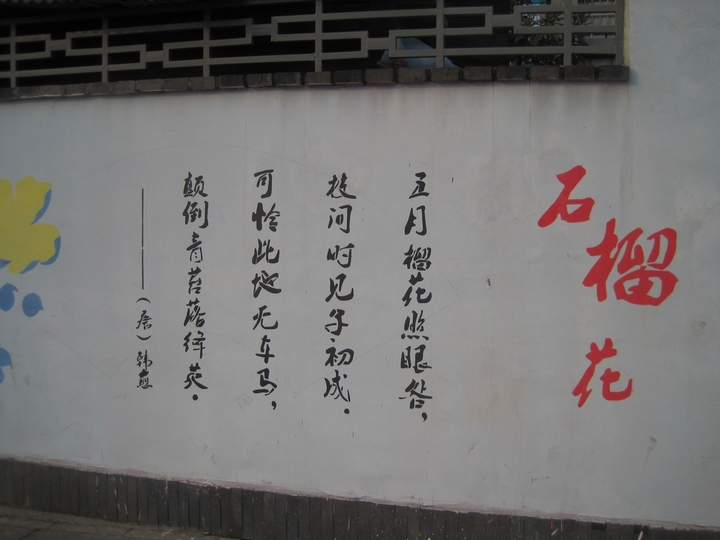 石榴花
五月榴花照眼,
枝间时见子初成.
可怜此地无车马,
颠倒青苔落绛英.
——(唐)韩愈